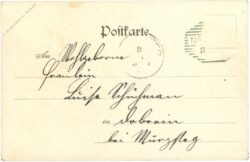 Postkarte
An Wohlgeborne
Fräulein
Luise Schuhman
in Dobrein
bei Mürzsteg